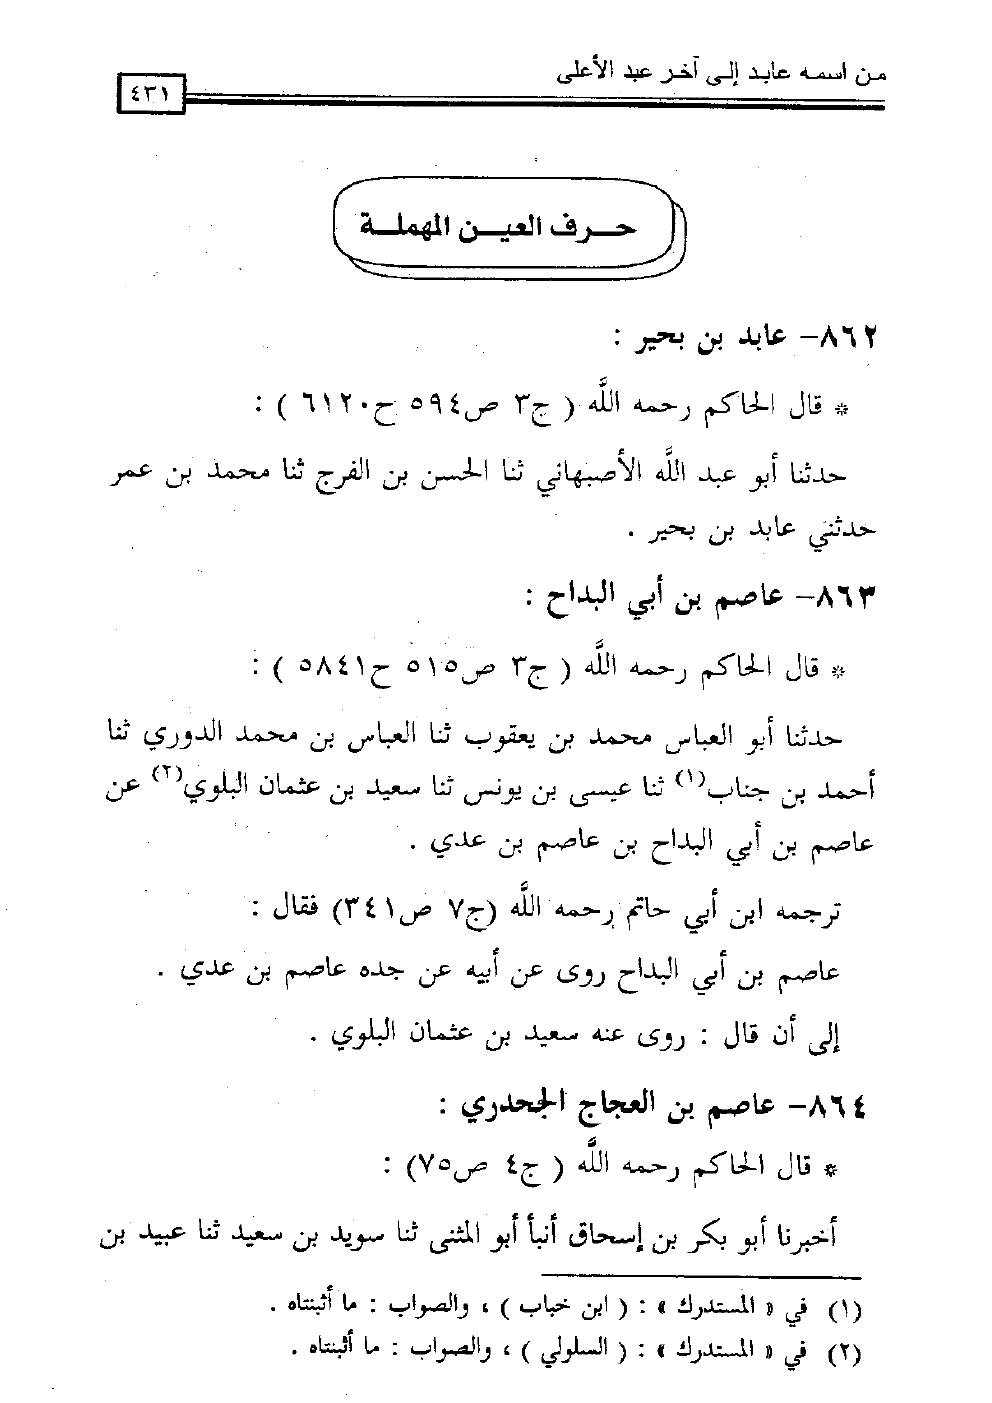 من اسمه عابد إلى آخر عبد الأعلى
٤٣١
حرف العين المهملة
٨٦٢- عابد بن بحير :
* قال الحاكم رحمه اللَّه ( ج٣ ص٥٩٤ ح٦١٢٠ ) :
حدثنا أبو عبد اللَّه الأصبهاني ثنا الحسن بن الفرج ثنا محمد بن عمر
حدثني عابد بن بحير .
٨٦٣- عاصم بن أبي البداح :
* قال الحاكم رحمه اللَّه ( ج٣ ص٥١٥ ح٥٨٤١ ) :
حدثنا أبو العباس محمد بن يعقوب ثنا العباس بن محمد الدوري ثنا
أحمد بن جناب(١) ثنا عيسى بن يونس ثنا سعيد بن عثمان البلوي(٢) عن
عاصم بن أبي البداح بن عاصم بن عدي .
ترجمه ابن أبي حاتم رحمه اللَّه (ج٧ ص٣٤١) فقال :
عاصم بن أبي البداح روى عن أبيه عن جده عاصم بن عدي .
إلى أن قال : روى عنه سعيد بن عثمان البلوي .
٨٦٤- عاصم بن العجاج الجحدري :
* قال الحاكم رحمه اللَّه ( ج٤ ص٧٥) :
أخبرنا أبو بكر بن إسحاق أنبأ أبو المثنى ثنا سويد بن سعيد ثنا عبيد بن
(١) في « المستدرك » : ( ابن خباب ) ، والصواب : ما أثبتناه .
(٢) في « المستدرك » : ( السلولي ) ، والصواب : ما أثبتناه .